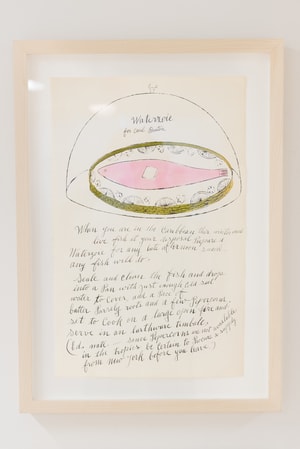 Waterzoie
for
When you are in the Caribbean this winter and
live fish at your disposal Prepare a
Waterzoie for any late afternoon
any fish will do.
Scale and clean the fish and drop
into a Pan with just enough salt
water to cover, add a Piece of
butter, Parsley roots and a few Peppercorns,
set to Cook on a large open fire and
serve in an earthware timbale,
(Eds. note — since Peppercorns are not available
in the tropics be Certain to Procure a supply
from New York before you leave.)